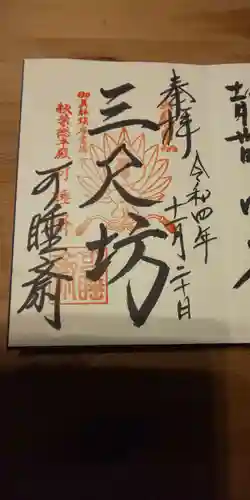 奉拝
令和四年
十一月二十日
三尺坊
秋葉總本殿可睡斎
可睡斎